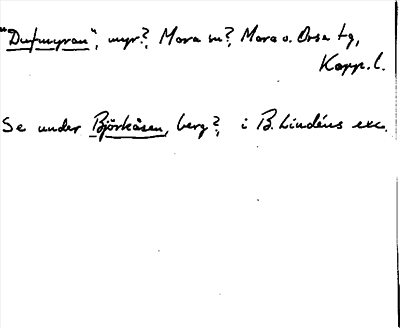 "Dufmyran", myr?, Mora sn?, Mora o. Orsa tg,
Kopp. l.
Se under Björkåsen, berg?, i B. Lindéns exc.